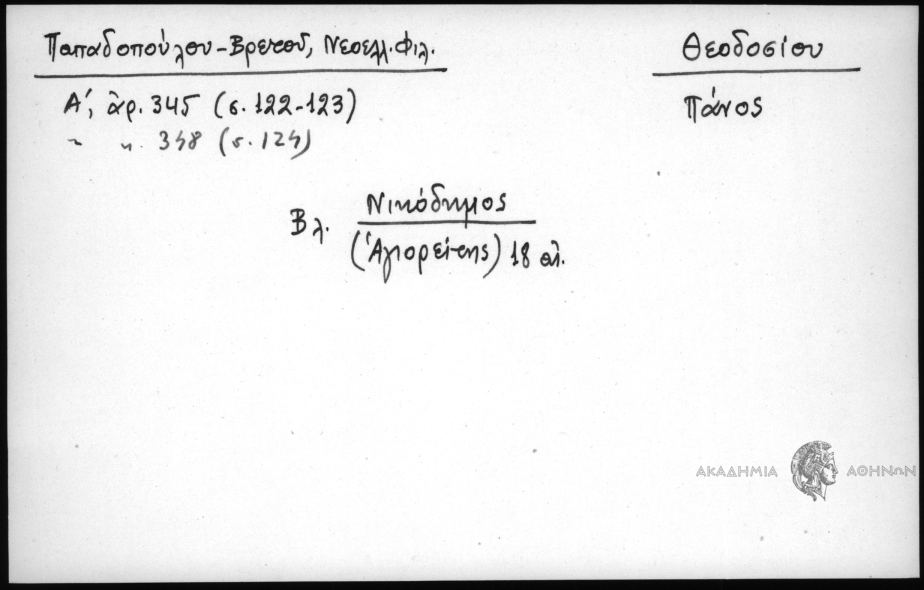 Παπαδοπούλου-Βρετού, Νεοελλ. Φιλ.
Θεοδοσίου
Πάνος
Α', ἀρ. 345 (σ. 122-123)
" ". 348 (σ. 124)
Βλ. Νικόδημος
(Ἁγιορείτης) 18 αἰ.
ΑΚΑΔΗΜΙΑ ΑΘΗΝΩΝ